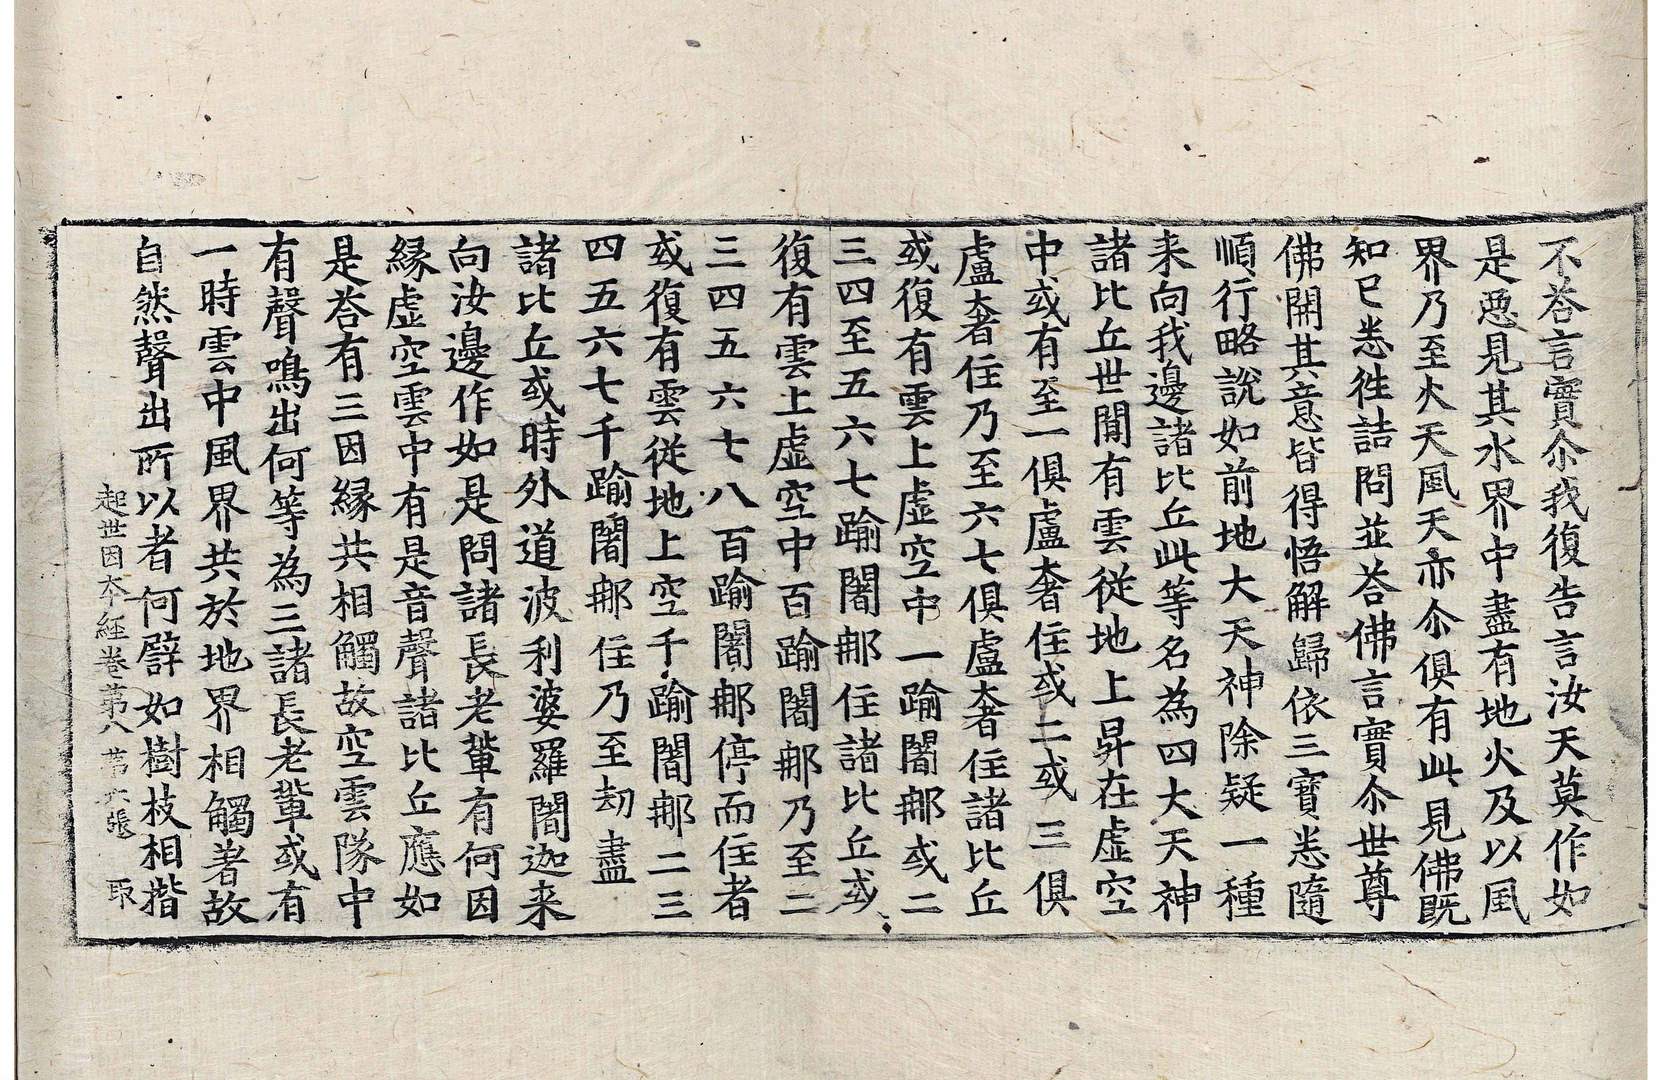 不荅言實尒我復告言汝天莫作如
是惡見其水界中盡有地火及以風
界乃至火天風天亦尒俱有此見佛既
知已悉徃詰問並荅佛言實尒世尊
佛開其意皆得悟解歸依三寶悉隨
順行略說如前地大天神除疑一種
来向我邊諸比丘此等名為四大天神
諸比丘世間有雲從地上昇在虛空
中或有至一俱盧奢住或二或三俱
盧奢住乃至六七俱盧奢住諸比丘
或復有雲上虛空中一踰闍郍或二
三四至五六七踰闍郍住諸比丘或
復有雲上虛空中百踰闍郍乃至二
三四五六七八百踰闍郍停而住者
或復有雲從地上空千踰闍郍二三
四五六七千踰闍郍住乃至刧盡
諸比丘或時外道波利婆羅闍迦来
向汝邊作如是問諸長老輩有何因
緣虛空雲中有是音聲諸比丘應如
是荅有三因緣共相觸故空雲隊中
有聲鳴出何等為三諸長老輩或有
一時雲中風界共於地界相觸著故
自然聲出所以者何譬如樹枝相揩
起世因夲經卷第八 苐六張 取